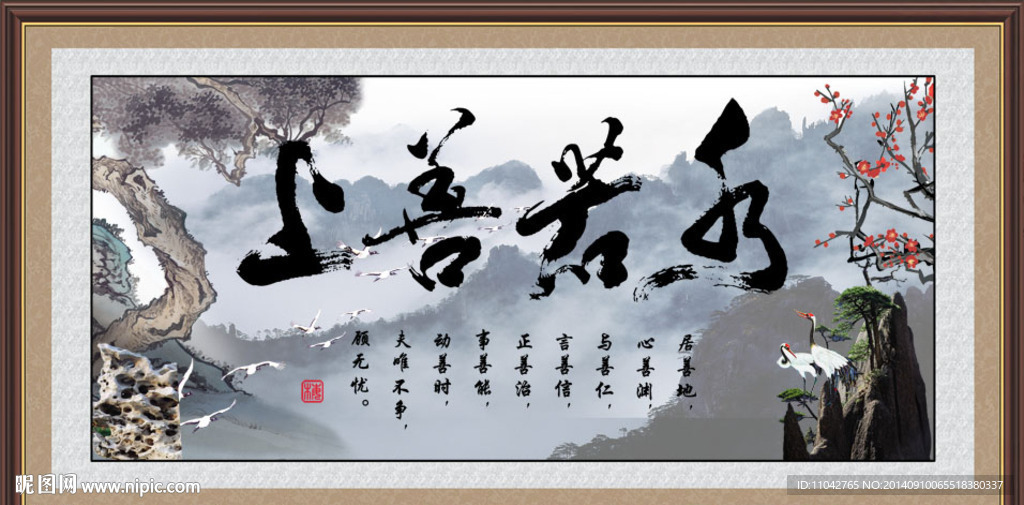 上善若水
居善地，
心善渊，
与善仁，
言善信，
正善治，
事善能，
动善时，
夫唯不争，
顾无忧。
昵图网 www.nipic.com
ID:11042765 NO:20140910065518380337